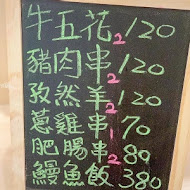 牛五花2 120
豬肉串2 120
孜然羊2 120
蔥雞串1 70
肥腸串2 80
鰻魚飯 380